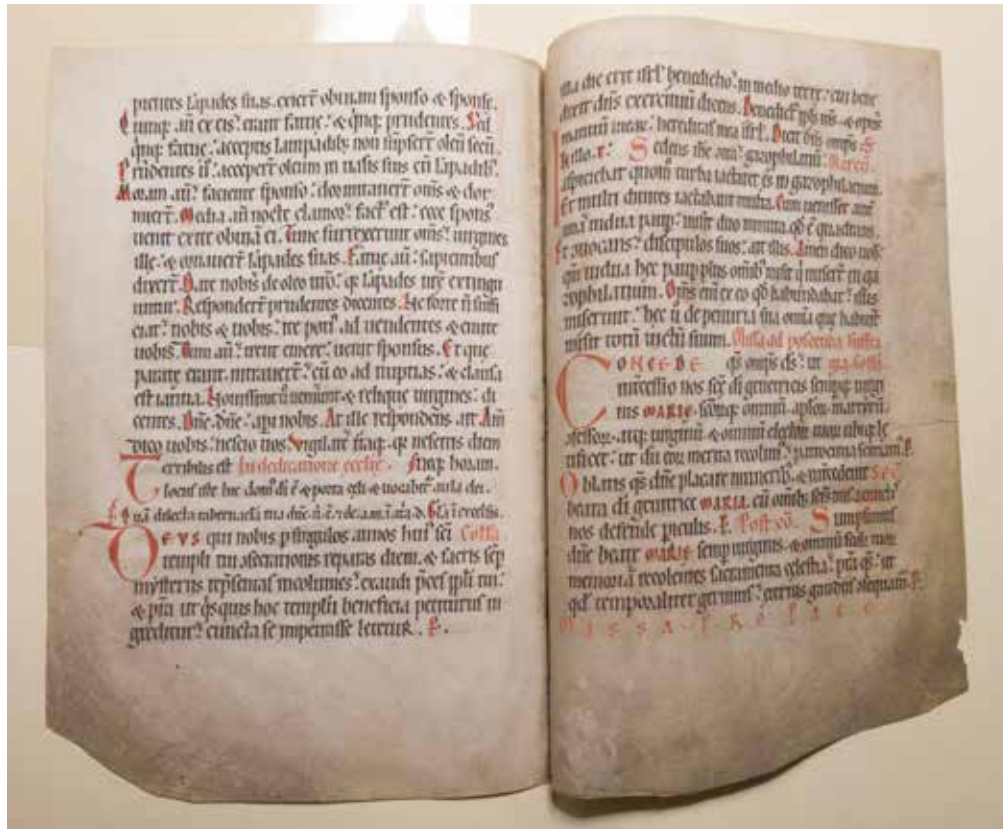 pientes lāpades suas. exiert̄ obuiam sponso ⁊ sponse.
Quinq. aū ex eis. erant fatue. ⁊ qⁱnqꝫ prudentes. Sed
qⁱnqꝫ fatue. acceptis lampadibꝫ non sūpsert̄ oleū secū.
Prudentes ū. accepert̄ oleum in uasis suis cū lāpadibꝫ.
Moram aū faciente sponso. dormitauert̄ om̄s ⁊ dor
miert̄. Media aū nocte clamor factꝰ est. ecce sponsꝰ
uenit exite obuiā ei. Tunc surrexerunt om̄s uirgines
ille. ⁊ ornauert̄ lāpades suas. Fatue aū sapientibus
dixert̄. Date nobis de oleo uro. qꝫ lāpades nr̄e extingu
untur. Respondert̄ prudentes dicentes. Ne forte n̄ suffi
ciat nobis ⁊ uobis. ite potiꝰ ad uendentes ⁊ emite
uobis. Dum aū irent emere. uenit sponsus. Et que
parate erant. intrauert̄ cū eo ad nuptias. ⁊ clausa
est ianua. Nouissime ū ueniunt ⁊ relique uirgines. di
centes. Dn̄e. dn̄e. api nobis. At ille respondens. ait Am̄
dico uobis. nescio uos. Vigilate itaqꝫ. qꝫ nescitis diem
Terribilis est In dedicatione ecclie. neqꝫ horam.
locus iste hic domꝰ di ē ⁊ porta celi ⁊ uocabit aula dei.
Quā dilecta tabernacla tua dn̄e
DEVS qui nobis p singulos annos huiꝰ sc̄i Collā
templi tui ↄsecrationis reparas diem. ⁊ sacris sēp
mysteriis rep̄sentas incolumes. exaudi p̄ces ppli tui.
⁊ p̄sta ut qⁱsquis hoc templū beneficia petiturus in
greditur. cuncta se impetrasse letetur. P.
illa die erit isrl̄ benedictio in medio terre. cui bene
dixit dn̄s exercituū dicens. Benedictꝰ ppls ms̄ ⁊ opus
manuū mearū. hereditas mea isrl̄. Dicit dn̄s om̄ps
In illo. t. Sedens ihc ↄtra gazophilatiū.
aspiciebat quom̄ turba iactaret es in gazophilacium.
Et multi diuites iactabant multa. Cum uenisset autē
una uidua paup. misit duo minuta. qd̄ ē quadrans.
Et ↄuocans discipulos suos. ait illis. Amen dico uobꝫ
qm̄ uidua hec paup plus omībꝫ misit qⁱ miserꝉ in ga
zophilatium. Om̄s eni ex eo qd̄ habundabat illis
miserunt. hec ū de penuria sua omīa que habuit
misit totū uictū suum. Missa ad poscenda suffra
CONCEDE qs om̄ps ds. ut gia sc̄oꝝ
intcessio nos sc̄e di genetricis semp uirgi
nis MARIE. sc̄oꝝqꝫ omniū aplon. martyrū.
ↄfessoꝝ. atqꝫ uirginū. ⁊ omniū electoꝝ tuoꝝ ubiqꝫ le
tificet. ut dū eoꝝ merita recolimꝰ. patrocinia sentiam. P.
Oblatis qs dn̄e placare muneribꝫ. ⁊ int̄cedente SEC
beata di genitrice MARIA cū omībꝫ sc̄is tuis a cunctis
nos defende piculis. P. Post cō. Sumpsimus
dn̄e beate MARIE semp uirginis. ⁊ omniū sc̄oꝝ tuoꝝ
memoriā recolentes sacramenta celestia. p̄sta qs. ut
qd̄ temporaliter gerimus. eternis gaudiis ↄsequam̄. P.
MISSA PRO PACE